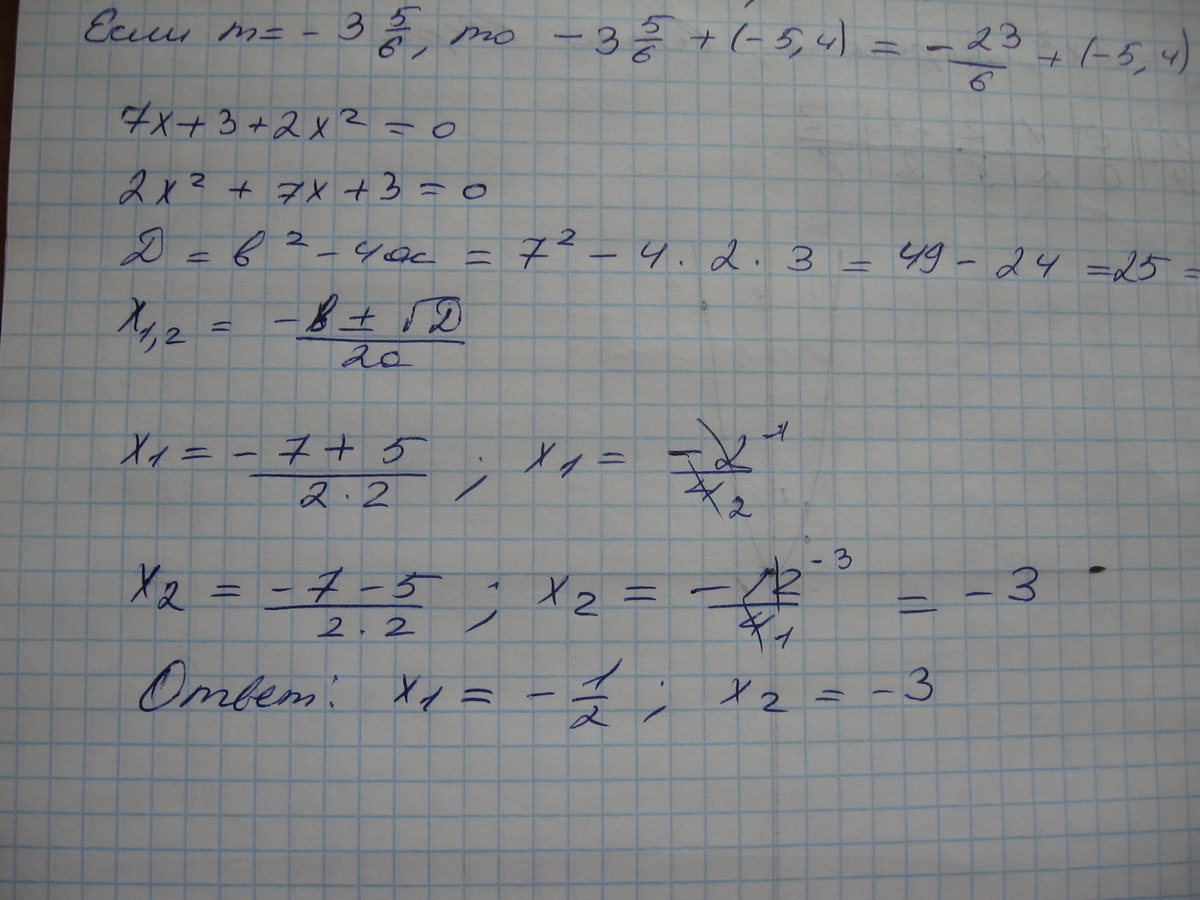 Если m = - 3 5/6, то - 3 5/6 + (-5,4) = - 23/6 + (-5,4)
7x + 3 + 2x² = 0
2x² + 7x + 3 = 0
D = в² - 4ac = 7² - 4 · 2 · 3 = 49 - 24 = 25 =
x₁,₂ = (-в ± √D)/2a
x₁ = (-7 + 5)/(2 · 2) ; x₁ = -2⁻¹/4₂
x₂ = (-7 - 5)/(2 · 2) ; x₂ = -12⁻³/4₁ = -3
Ответ: x₁ = - 1/2 ; x₂ = -3